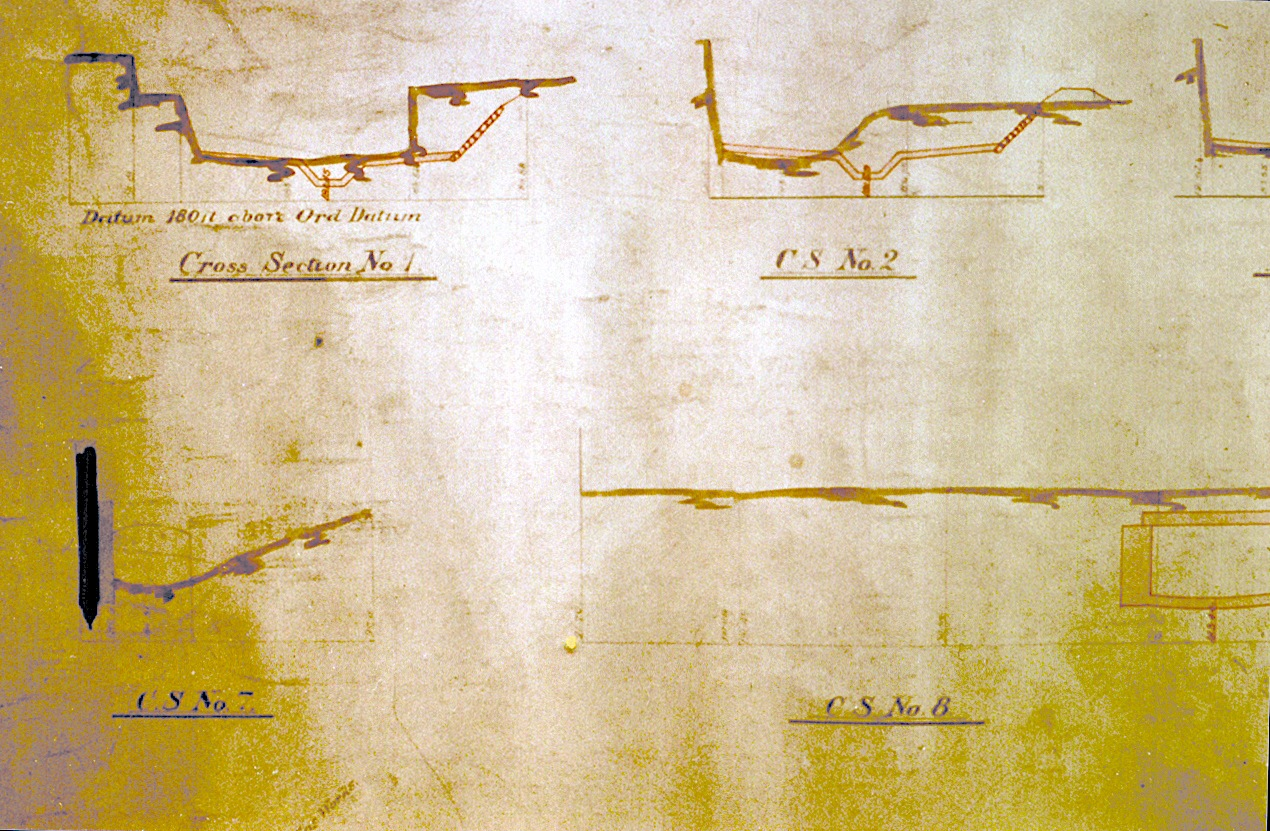 Datum 180ft above Ord Datum
Cross Section No 1
C S No. 2
C.S No. 7.
C.S. No. 8